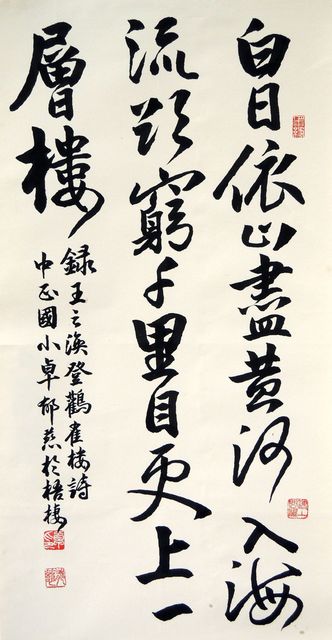 白日依山盡黄河入海
流欲窮千里目更上一
層樓
録王之渙登鸛雀樓詩
中正國小卓郁慈於梧棲